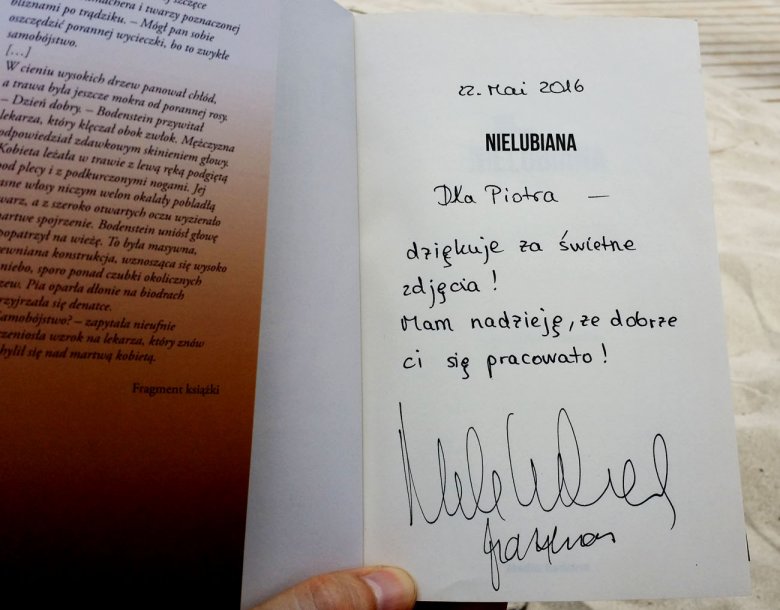 bliznami po trądziku. – Mógł pan sobie
oszczędzić porannej wycieczki, bo to zwykłe
samobójstwo.
[…]
W cieniu wysokich drzew panował chłód,
a trawa była jeszcze mokra od porannej rosy.
– Dzień dobry. – Bodenstein przywitał
lekarza, który klęczał obok zwłok. Mężczyzna
odpowiedział zdawkowym skinieniem głowy.
Kobieta leżała w trawie z lewą ręką podgiętą
pod plecy i z podkurczonymi nogami. Jej
asne włosy niczym welon okalały pobladłą
warz, a z szeroko otwartych oczu wyzierało
artwe spojrzenie. Bodenstein uniósł głowę
popatrzył na wieżę. To była masywna,
ewniana konstrukcja, wznosząca się wysoko
niebo, sporo ponad czubki okolicznych
zew. Pia oparła dłonie na biodrach
rzyjrzała się denatce.
amobójstwo? – zapytała nieufnie
rzeniosła wzrok na lekarza, który znów
hylił się nad martwą kobietą.
Fragment książki
22. Mai 2016
NIELUBIANA
Dla Piotra —
dziękuje za świetne
zdjęcia!
Mam nadzieję, że dobrze
ci się pracowało!